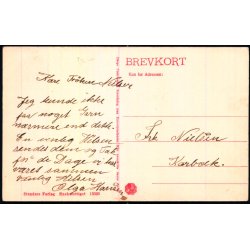 BREVKORT
Kun for Adressen:
Kære Fröken Nielsen
Jeg kunde ikke
faa noget Gern
nærmere end dette.
En venlig Hilsen
sendes dem og Tak
for de Dage vi har
været sammen
venlig Hilsen
Olga
Frk Nielsen
Karbæk.
Stenders Forlag